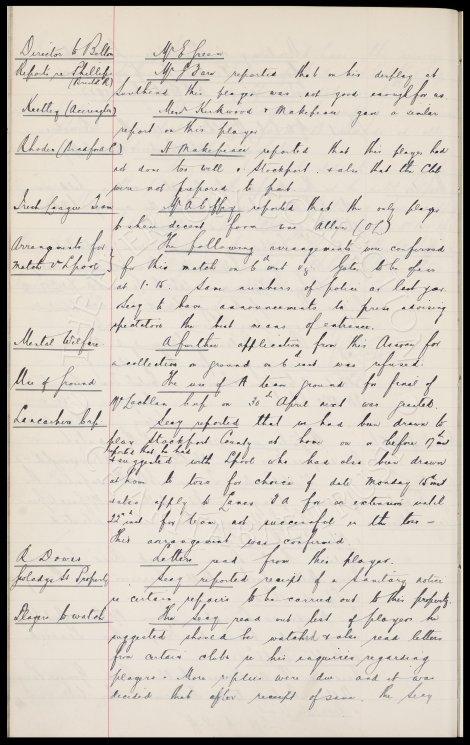 Director to Bolton Mr E Green
Reports re Phillips Mr J Fare reported that on his display at
(Knuld R) Southend this player was not good enough for us
Keetley (Accrington) Messrs Kirkwood & Makepeace gave a similar
report on this player
Rhodes (Bradford C) H Makepeace reported that this player had
not done too well v Stockport & also that the Club
were not prepared to part.
Irish League Team Mr A Coffey reported that the only player
to shew decent form was
Arrangements for The following arrangements were confirmed
Match v L'pool for this match on 6th inst. Gates to be open
at 1-15. Same numbers of police as last year
Secy to have announcements to press advising
spectators the best means of entrance.
Mental Welfare A further application from this Assocn for
a collection on ground on 6th inst was refused.
Use of Ground The use of A team ground for final of
McLachlan Cup on 30th April next was granted.
Lancashire Cup Secy reported that we had been drawn to
play Stockport County at home on or before 17th inst
reported that he had
& suggested with L'pool who had also been drawn
at home to toss for choice of date Monday 15th inst
& also apply to Lancs F A for an extension until
22nd inst for team not successful in the toss -
this arrangement was confirmed.
A Dowes Letters read from this player.
Goodlaye St Property Secy reported receipt of a sanitary notice
re certain repairs to be carried out to this property.
Players to watch The Secy read out list of players he
suggested should be watched & also read letters
from certain clubs re his inquiries regarding
players. More replies were due and it was
decided that after receipt of same the Secy